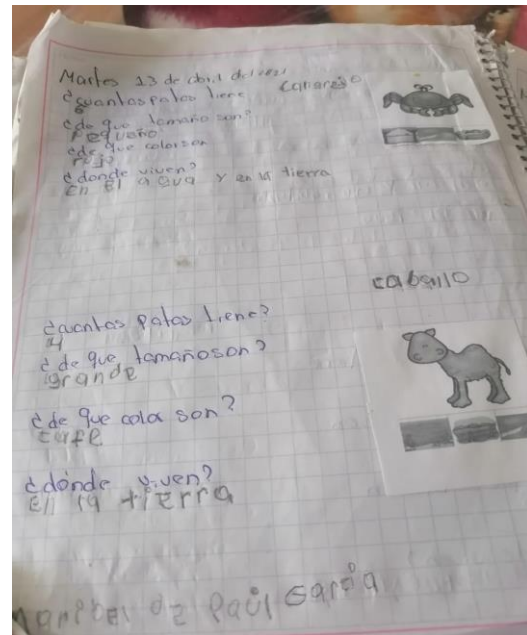 Martes 13 de abril del 2021
cangrejo
¿cuantas patas tiene
8
¿de que tamaño son?
Pequeño
¿de que color son
rojo
¿donde viven?
En El agua y en la tierra
caballo
¿cuantas patas tiene?
4
¿de que tamaño son?
grande
¿de que color son?
cafe
¿dónde viven?
En la tierra
de Paúl García